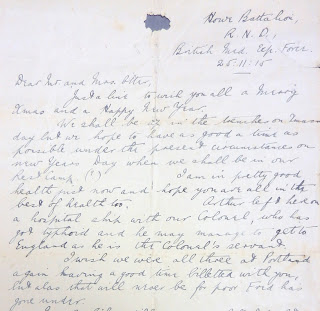 Howe Battalion,
R. N. D.,
British Med. Exp. Force
25.11.15
Dear Mr and Mrs
Just a line to wish you all a Merry
Xmas and a Happy New Year.
We shall be in the trenches on Xmas
day but we hope to have as good a time as
possible under the present circumstances on
new Years Day when we shall be in our
rest camp. (?) I am in pretty good
health just now and hope you are all in the
best of health too. Arthur left here on
a hospital ship with our Colonel, who has
got typhoid and he may manage to get to
England as he is the Colonel's servant.
I wish we were all three at Portland
again having a good time billetted with you,
but alas that will never be for poor Ford has
gone under.